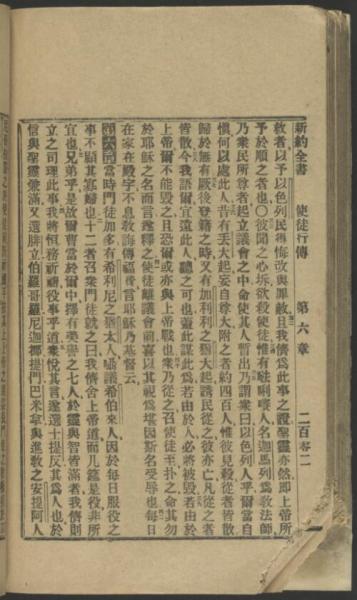 新約全書　使徒行傳　第六章　二百零二
救者以予以色列民得悔改與罪赦且我儕為此事之證聖靈亦然即上帝所
予於順之者也〇彼聞之心坼欲殺使徒惟有 唎㘔人名迦馬列為教法師
乃衆民所尊者起立議會之中命使其人暫出乃謂衆曰以色列人乎爾當自
慎何以處此人昔有丟大起妄自尊大附之者約四百人惟彼見殺從者皆散
歸於無有厥後登籍之時又有加利利之猶大起誘民從之彼亦亡凡從之者
皆散今我語爾宜遠此人聽之可也蓋此謀此為若由於人必將被毀若由於
上帝爾不能毀之且恐爾或亦與上帝戰也衆乃從之召使徒至扑之命其勿
於耶穌之名而言遂釋之使徒離議會前喜以其視為堪因斯名受辱也每日
在家在殿宇不息教誨傳福音言耶穌乃基督云
第六章當時門徒加多有希利尼之猶太人囁議希伯來人因於每日服役之
事不顧其寡婦也十二者召衆門徒就之曰我儕舍上帝道而几筵是役非所
宜也兄弟乎是故爾曹當於爾中擇有美譽之七人於靈與智皆滿者我儕則
立之司理此事我將恆務祈禱役事乎道衆悅其言遂選士提反其為人也於
信與聖靈兼滿又選腓立伯羅哥羅尼迦挪提門巴米拿與進教之安提阿人